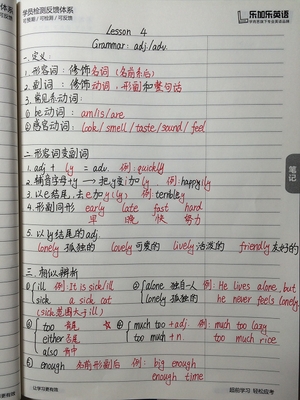 学员检测反馈体系
可检测 / 可检测 / 可反馈
乐加乐英语
Lesson 4
Grammar: adj./adv.
一.定义:
1. 形容词: 修饰名词 (名前系后)
2. 副词: 修饰动词, 形副和整句话
3. 常见系动词:
① be动词: am/is/are
② 感官动词: look/smell/taste/sound/feel
二.形容词变副词
1. adj + ly = adv. 例: quickly
2. 辅音字母+y → 把y变i加ly. 例: happily
3. 以e结尾, 去e加y(ly) 例: terribley
4. 形副同形 early late fast hard
早 晚 快 努力
5. 以ly结尾的adj.
lonely 孤独的 lovely 可爱的 lively 活泼的 friendly 友好的
三.相似辨析
① ill 例: It is sick/ill
sick a sick cat
(sick范围大于ill)
② alone 独自一人 例: He lives alone, but
lonely 孤独的 he never feels lonely.
③ too 肯尾
either 否尾
also 肯中
④ much too + adj. 例: much too lazy
too much + n. too much rice
⑤ enough 名前形副后 例: big enough
enough time
笔记
让学习更有效
超前学习 轻松应考